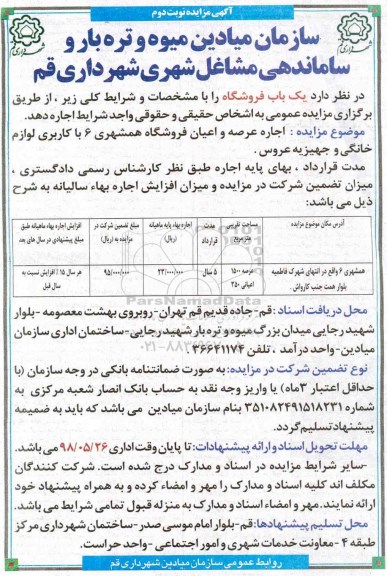 آگهی مزایده نوبت دوم
سازمان میادین میوه و تره بار و
ساماندهی مشاغل شهری شهرداری قم
در نظر دارد یک باب فروشگاه را با مشخصات و شرایط کلی زیر ، از طریق
برگزاری مزایده عمومی به اشخاص حقیقی و حقوقی واجد شرایط اجاره دهد.
موضوع مزایده : اجاره عرصه و اعیان فروشگاه همشهری ۶ با کاربری لوازم
خانگی و جهیزیه عروس .
مدت قرارداد ، بهای پایه اجاره طبق نظر کارشناس رسمی دادگستری ،
میزان تضمین شرکت در مزایده و میزان افزایش اجاره بهاء سالیانه به شرح
ذیل می باشد:
آدرس مکان موضوع مزایده | مساحت تقریبی متر مربع | مدت قرارداد | اجاره بهاء پایه ماهیانه (ریال) | مبلغ تضمین شرکت در مزایده به (ریال) | افزایش اجاره بهاء ماهیانه طبق مبلغ پیشنهادی در سال های بعد
همشهری ۶ واقع در انتهای شهرک فاطمیه بلوار همت جنب کارواش . | عرصه ۱۵۰۰ اعیانی ۲۵۰ | ۵ سال | ۲۳/۰۰۰/۰۰۰ | ۹۵/۰۰۰/۰۰۰ | هر سال ۱۵٪ افزایش نسبت به سال قبل
محل دریافت اسناد : قم-جاده قدیم قم تهران-روبروی بهشت معصومه -بلوار
شهید رجایی میدان بزرگ میوه و تره بار شهید رجایی-ساختمان اداری سازمان
میادین-واحد درآمد ، تلفن ۳۶۶۴۱۱۷۴ .
نوع تضمین شرکت در مزایده: به صورت ضمانتنامه بانکی در وجه سازمان (با
حداقل اعتبار ۳ماه) یا واریز وجه نقد به حساب بانک انصار شعبه مرکزی به
شماره ۳۵۱۰۸۲۴۹۱۵۱۸۲۳۱ بنام سازمان میادین می باشد که باید به ضمیمه
پیشنهاد تسلیم گردد.
مهلت تحویل اسناد و ارائه پیشنهادات: تا پایان وقت اداری ۹۸/۰۵/۲۶ می باشد.
-سایر شرایط مزایده در اسناد و مدارک درج شده است. شرکت کنندگان
مکلف اند کلیه اسناد و مدارک را مهر و امضاء کرده و به همراه پیشنهاد خود
ارائه نمایند. مهر و امضاء اسناد و مدارک به منزله قبول تمامی شرایط می باشد.
محل تسلیم پیشنهادها: قم-بلوار امام موسی صدر-ساختمان شهرداری مرکز
طبقه ۴ -معاونت خدمات شهری و امور اجتماعی -واحد حراست.
روابط عمومی سازمان میادین شهرداری قم